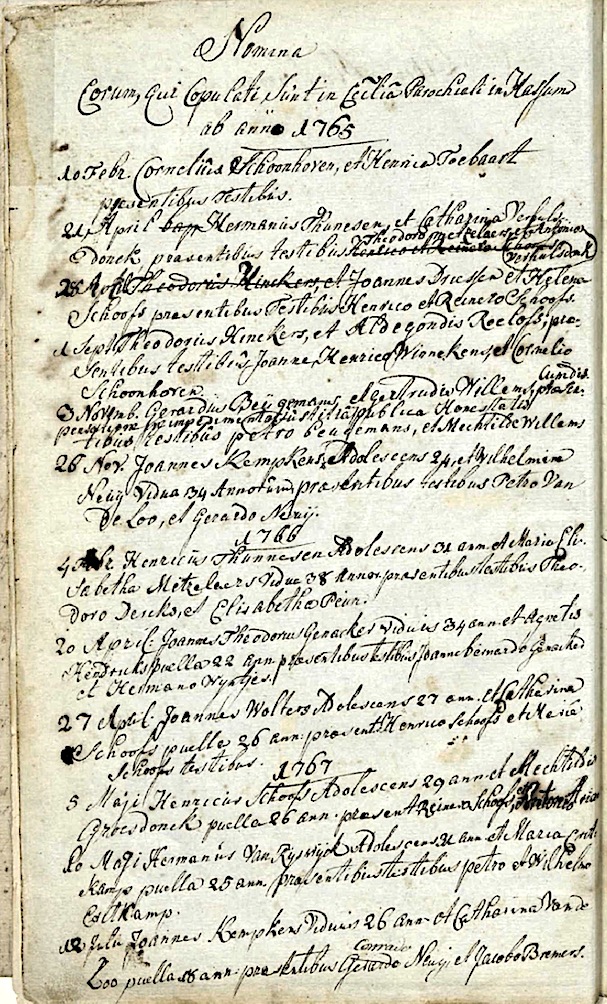 Nomina
Eorum, qui Copulati Sunt in Ecclia Parochiali in Hassum
ab anno 1765
10 Febr. Cornelius Schoonhoven, et Henrica Toebaart
praesentibus Testibus.
21 April Hermanus Thunesen, et Catharina Verhuls-
donck praesentibus testibus Theodoro Metzelaers et Antonio
Verhulsdonk
Theodorus Hinckers, et Joannes Driessen et Helena
Schoofs praesentibus Testibus Henrico et Reinero Schoofs.
1 Sept. Theodorius Hinckers, et Aldegondis Roeloffs, prae-
sentibus testibus Joanne Henrico Winnekens, et Cornelio
Schoonhoven.
3 Novemb. Gerardus Beugemans, et Gertrudis Willems, praesen-
impedimento Justitia publica Honestatis
tibus testibus petro beugemans, et Mechtilde Willems
26 Nov. Joannes Kempkens, Adolescens 24, et Wilhelmina
Neuy Vidua 34 Annorum, praesentibus testibus Petro Van
De Loo, et Gerardo Neuij.
1766
4 Henricus Thunnesen Adolescens 31 ann. et Maria Eli-
sabetha Metzelaers Vidua 38 Annor. praesentibus testibus Theo-
doro Dercks, et Elisabetha Peun.
20 April. Joannes Theodorus Genacker Viduus 34 ann. et Agnetis
Hendricks puella 22 ann. praesentibus testibus Joanne bernardo Genacker
et Hermano
27 April. Joannes Wolters Adolescens 27 ann. et Catharina
Schoofs puella 26 ann. praesent. Henrico Schoofs et Maria
Schoofs testibus.
1767
5 Maji Henricus Schoofs Adolescens 29 ann. et Mechtildis
Groesdonck puella 26 ann. praesent. Reinero Schoofs,
10 Maji Hermanus Van Ryswyck Adolescens 31 ann. et Maria
Kamp puella 25 ann. praesentibus testibus petro et Wilhelmo
EsltKamp.
12 Julii Joannes Kempkens Viduus 26 ann. et Catharina Van de
Loo puella 18 ann. praesentibus Conrado Gerardo Neuij, et Jacobo Bremers.